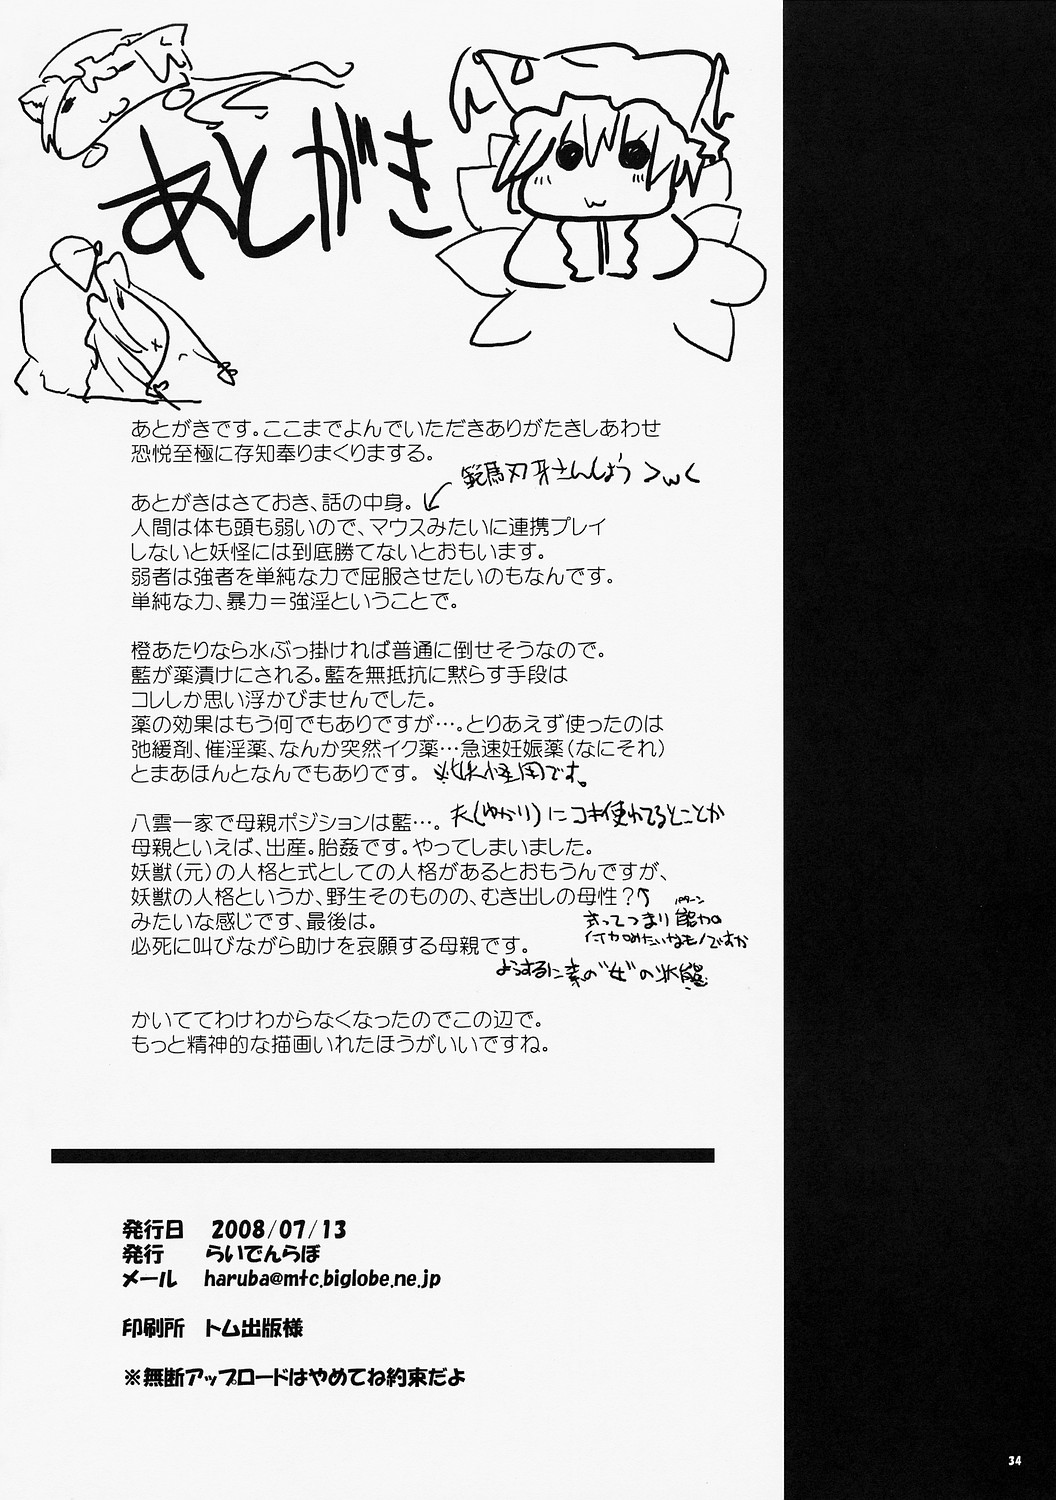 あとがき
あとがきです。ここまでよんでいただきありがたきしあわせ
恐悦至極に存知奉りまくりまする。
範馬刃牙さんしょう ＞ｗ＜
あとがきはさておき、話の中身。
人間は体も頭も弱いので、マウスみたいに連携プレイ
しないと妖怪には到底勝てないとおもいます。
弱者は強者を単純な力で屈服させたいのもなんです。
単純な力、暴力＝強淫ということで。
橙あたりなら水ぶっ掛ければ普通に倒せそうなので。
藍が薬漬けにされる。藍を無抵抗に黙らす手段は
コレしか思い浮かびませんでした。
薬の効果はもう何でもありですが…。とりあえず使ったのは
弛緩剤、催淫薬、なんか突然イク薬…急速妊娠薬（なにそれ）
とまあほんとなんでもありです。 ※妖怪用です。
八雲一家で母親ポジションは藍…。 夫（ゆかり）にコキ使われてるとことか
母親といえば、出産。胎姦です。やってしまいました。
妖獣（元）の人格と式としての人格があるとおもうんですが、
妖獣の人格というか、野生そのものの、むき出しの母性？
みたいな感じです、最後は。
式ってつまり能力の
パターン
付加みたいなモノですか
必死に叫びながら助けを哀願する母親です。
ようするに素の"女"の状態
かいててわけわからなくなったのでこの辺で。
もっと精神的な描画いれたほうがいいですね。
発行日 2008/07/13
発行 らいでんらぼ
メール haruba@mtc.biglobe.ne.jp
印刷所 トム出版様
※無断アップロードはやめてね約束だよ
34